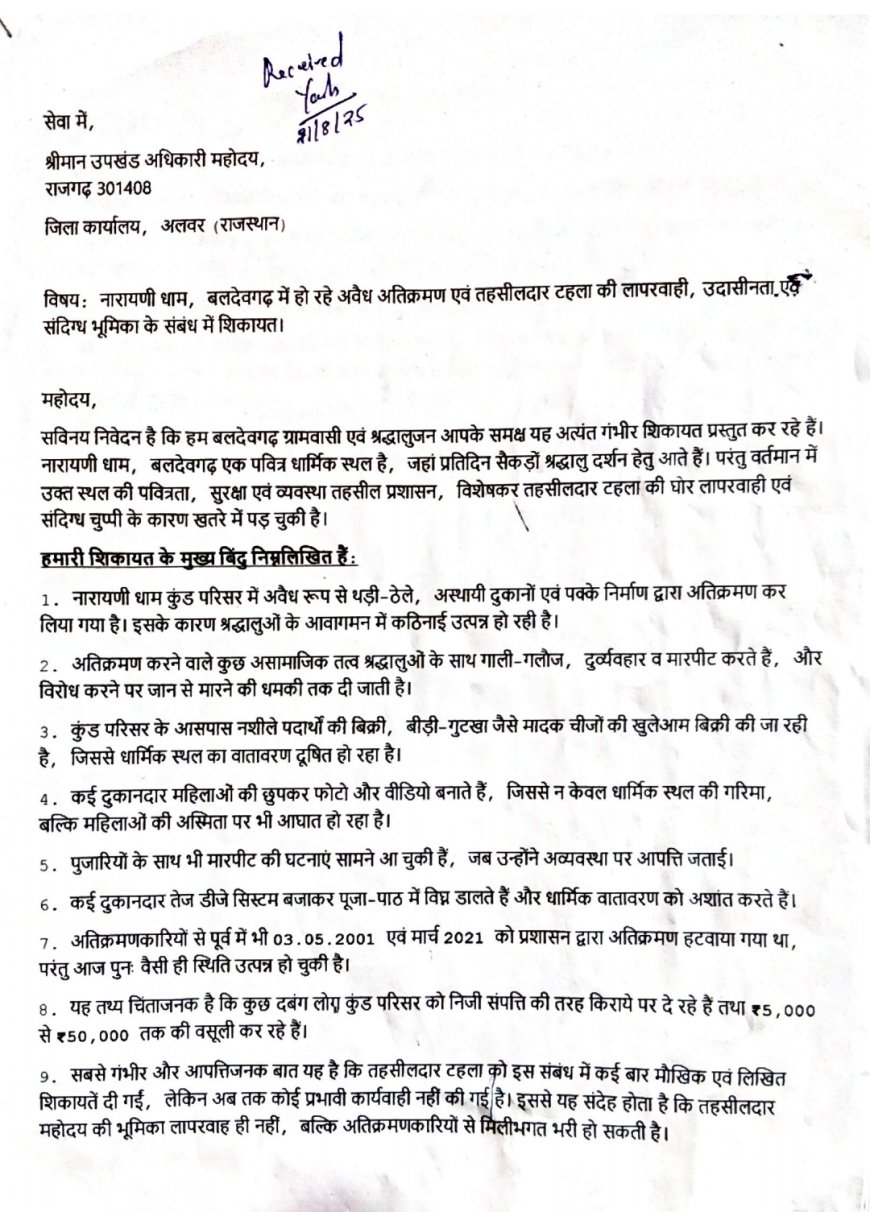 Received
21/8/25
सेवा में,
श्रीमान उपखंड अधिकारी महोदय,
राजगढ़ 301408
जिला कार्यालय, अलवर (राजस्थान)
विषय: नारायणी धाम, बलदेवगढ़ में हो रहे अवैध अतिक्रमण एवं तहसीलदार टहला की लापरवाही, उदासीनता, एवं
संदिग्ध भूमिका के संबंध में शिकायत।
महोदय,
सविनय निवेदन है कि हम बलदेवगढ़ ग्रामवासी एवं श्रद्धालुजन आपके समक्ष यह अत्यंत गंभीर शिकायत प्रस्तुत कर रहे हैं।
नारायणी धाम, बलदेवगढ़ एक पवित्र धार्मिक स्थल है, जहां प्रतिदिन सैकड़ों श्रद्धालु दर्शन हेतु आते हैं। परंतु वर्तमान में
उक्त स्थल की पवित्रता, सुरक्षा एवं व्यवस्था तहसील प्रशासन, विशेषकर तहसीलदार टहला की घोर लापरवाही एवं
संदिग्ध चुप्पी के कारण खतरे में पड़ चुकी है।
हमारी शिकायत के मुख्य बिंदु निम्नलिखित हैं:
1. नारायणी धाम कुंड परिसर में अवैध रूप से थड़ी-ठेले, अस्थायी दुकानों एवं पक्के निर्माण द्वारा अतिक्रमण कर
लिया गया है। इसके कारण श्रद्धालुओं के आवागमन में कठिनाई उत्पन्न हो रही है।
2. अतिक्रमण करने वाले कुछ असामाजिक तत्व श्रद्धालुओं के साथ गाली-गलौज, दुर्व्यवहार व मारपीट करते हैं, और
विरोध करने पर जान से मारने की धमकी तक दी जाती है।
3. कुंड परिसर के आसपास नशीले पदार्थों की बिक्री, बीड़ी-गुटखा जैसे मादक चीजों की खुलेआम बिक्री की जा रही
है, जिससे धार्मिक स्थल का वातावरण दूषित हो रहा है।
4. कई दुकानदार महिलाओं की छुपकर फोटो और वीडियो बनाते हैं, जिससे न केवल धार्मिक स्थल की गरिमा,
बल्कि महिलाओं की अस्मिता पर भी आघात हो रहा है।
5. पुजारियों के साथ भी मारपीट की घटनाएं सामने आ चुकी हैं, जब उन्होंने अव्यवस्था पर आपत्ति जताई।
6. कई दुकानदार तेज डीजे सिस्टम बजाकर पूजा-पाठ में विघ्न डालते हैं और धार्मिक वातावरण को अशांत करते हैं।
7. अतिक्रमणकारियों से पूर्व में भी 03.05.2001 एवं मार्च 2021 को प्रशासन द्वारा अतिक्रमण हटवाया गया था,
परंतु आज पुनः वैसी ही स्थिति उत्पन्न हो चुकी है।
8. यह तथ्य चिंताजनक है कि कुछ दबंग लोग कुंड परिसर को निजी संपत्ति की तरह किराये पर दे रहे हैं तथा ₹5,000
से ₹50,000 तक की वसूली कर रहे हैं।
9. सबसे गंभीर और आपत्तिजनक बात यह है कि तहसीलदार टहला को इस संबंध में कई बार मौखिक एवं लिखित
शिकायतें दी गईं, लेकिन अब तक कोई प्रभावी कार्यवाही नहीं की गई है। इससे यह संदेह होता है कि तहसीलदार
महोदय की भूमिका लापरवाह ही नहीं, बल्कि अतिक्रमणकारियों से मिलीभगत भरी हो सकती है।